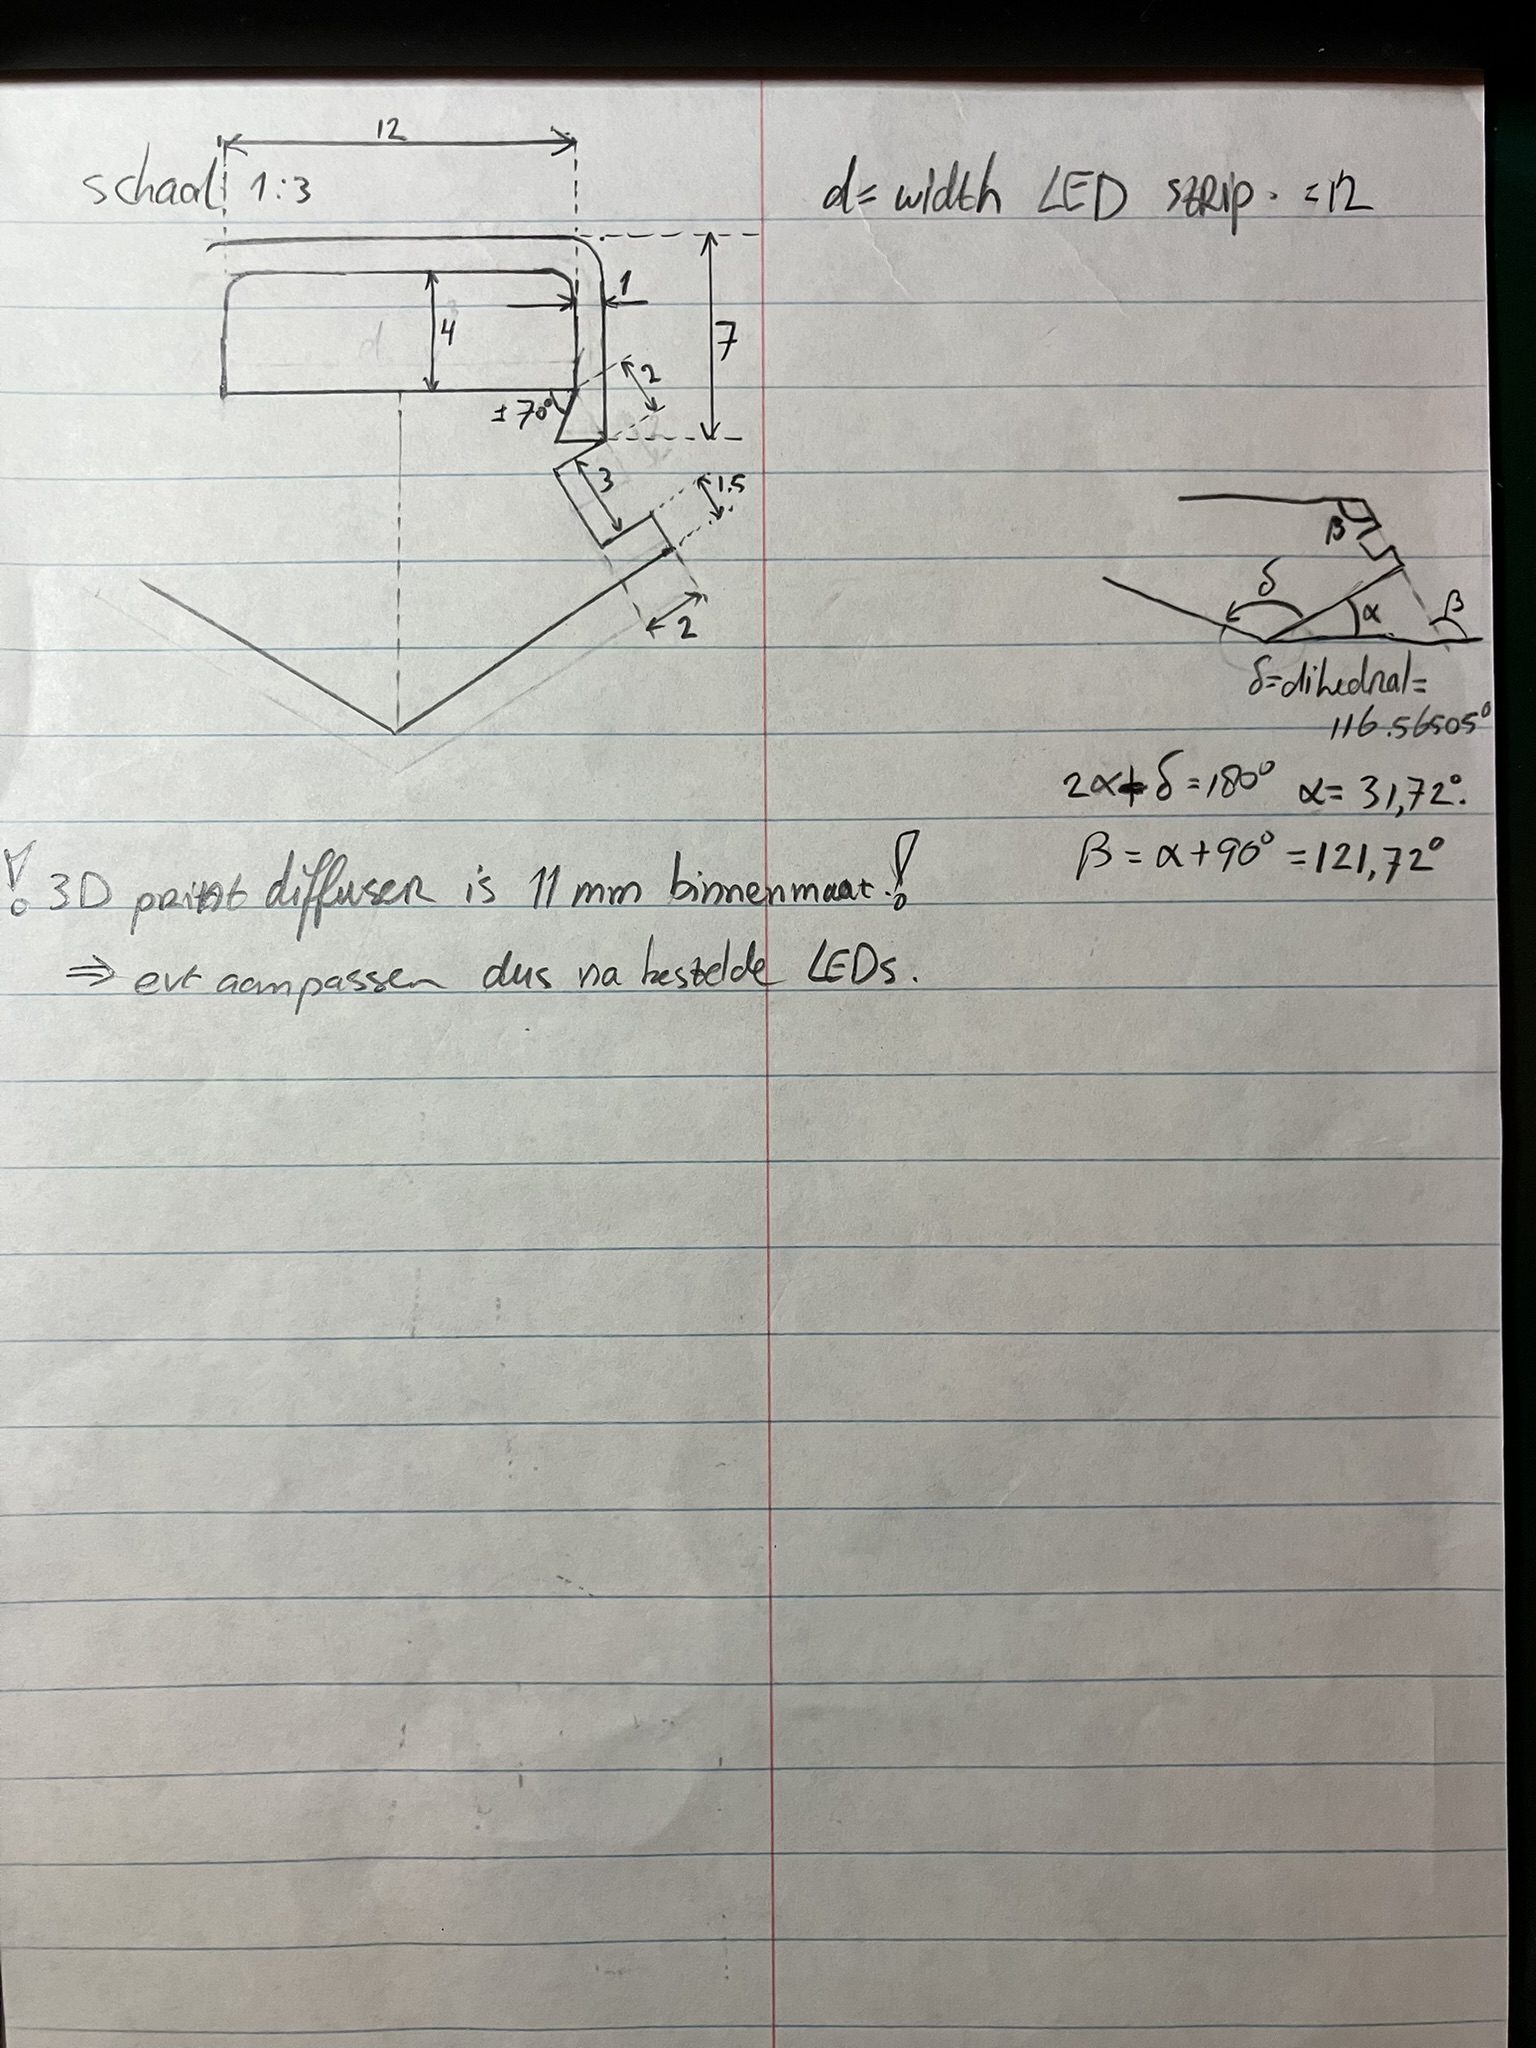 12
schaal 1:3
d = width LED strip. = 12
1
4
7
2
± 70°
3
1.5
2
β
δ
α
β
δ = dihedral =
116.56505°
2α + δ = 180° α = 31,72°.
β = α + 90° = 121,72°
! 3D print diffuser is 11 mm binnenmaat.!
⇒ evt aanpassen dus na bestelde LEDs.